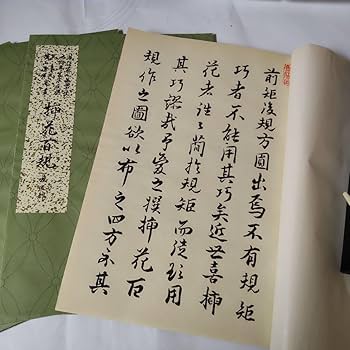 前矩後規方圓出焉不有規矩
巧者不能用其巧矣近世喜插
花者往々簡於規矩而徒用
其巧謬哉予憂之撰插花百
規作之圖欲以布之四方示其
插花百規